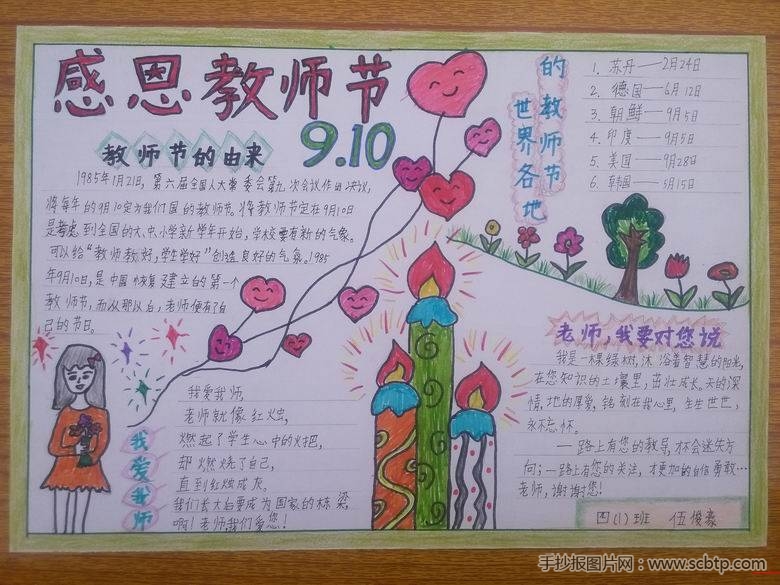 感恩教师节
9.10
教师节的由来
1985年1月21日，第六届全国人大常委会第九次会议作出决议，
将每年的9月10定为我们国的教师节。将教师节定在9月10日
是考虑到全国的大、中、小学新学年开始，学校要有新的气象。
可以给“教师教好，学生学好”创造良好的气象。1985
年9月10日，是中国恢复建立的第一个
教师节，而从那以后，老师便有了自
己的节日。
世界各地
的教师节
1. 苏丹——2月24日
2. 德国——6月12日
3. 朝鲜——9月5日
4. 印度——9月5日
5. 美国——9月28日
6. 韩国——5月15日
我爱我师
我爱我师，
老师就像红火虫，
燃起了学生心中的火把，
却燃烧了自己，
直到红烛成灰，
我们长大后要成为国家的栋梁，
啊！老师，我们爱您！
老师，我要对您说
我是一棵绿树，沐浴着智慧的阳光，
在您知识的土壤里，茁壮成长。天的深
情，地的厚爱，铭刻在我心里，生生世世，
永不忘怀。
一路上有您的教导，才不会迷失方
向；一路上有您的关注，才更加的自信勇敢…
老师，谢谢您！
四(1)班 伍俊豪
手抄报图片网：www.scbtp.com